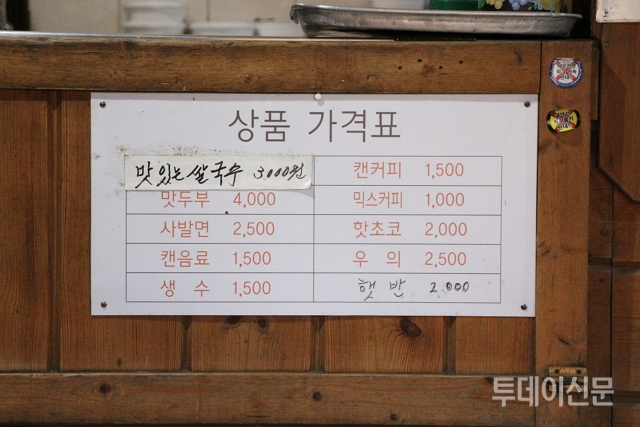 상품 가격표
맛있는 쌀국수 3000원
캔커피 1,500
맛두부 4,000
믹스커피 1,000
사발면 2,500
핫초코 2,000
캔음료 1,500
우 의 2,500
생 수 1,500
햇반 2.000
투데이신문